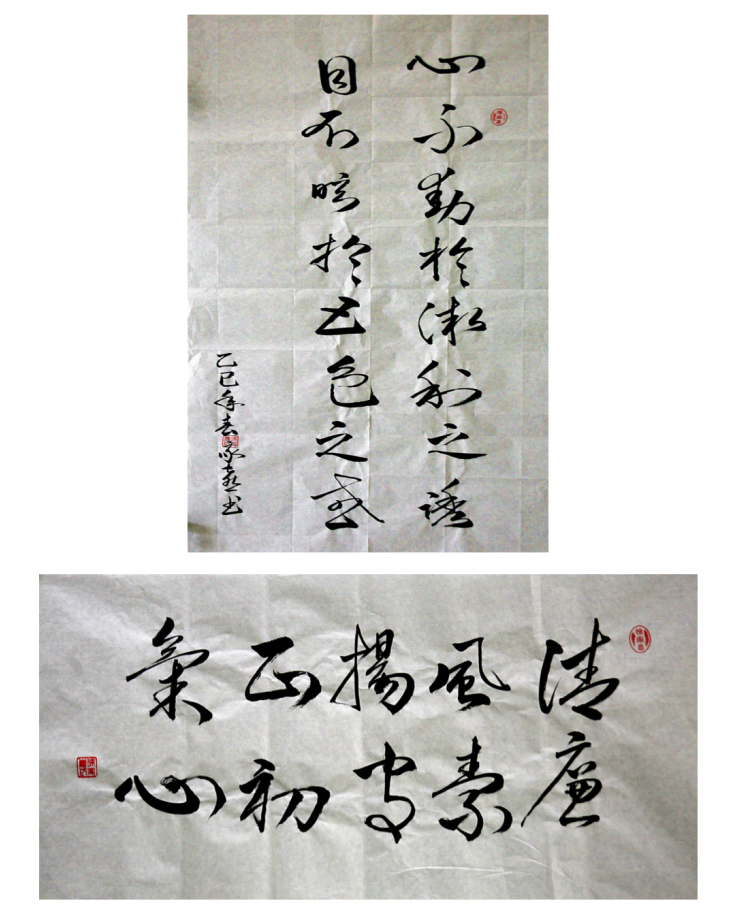 心不動於微利之誘
目不眩於五色之惑
乙巳年春 书
清風揚正氣
廉素守初心